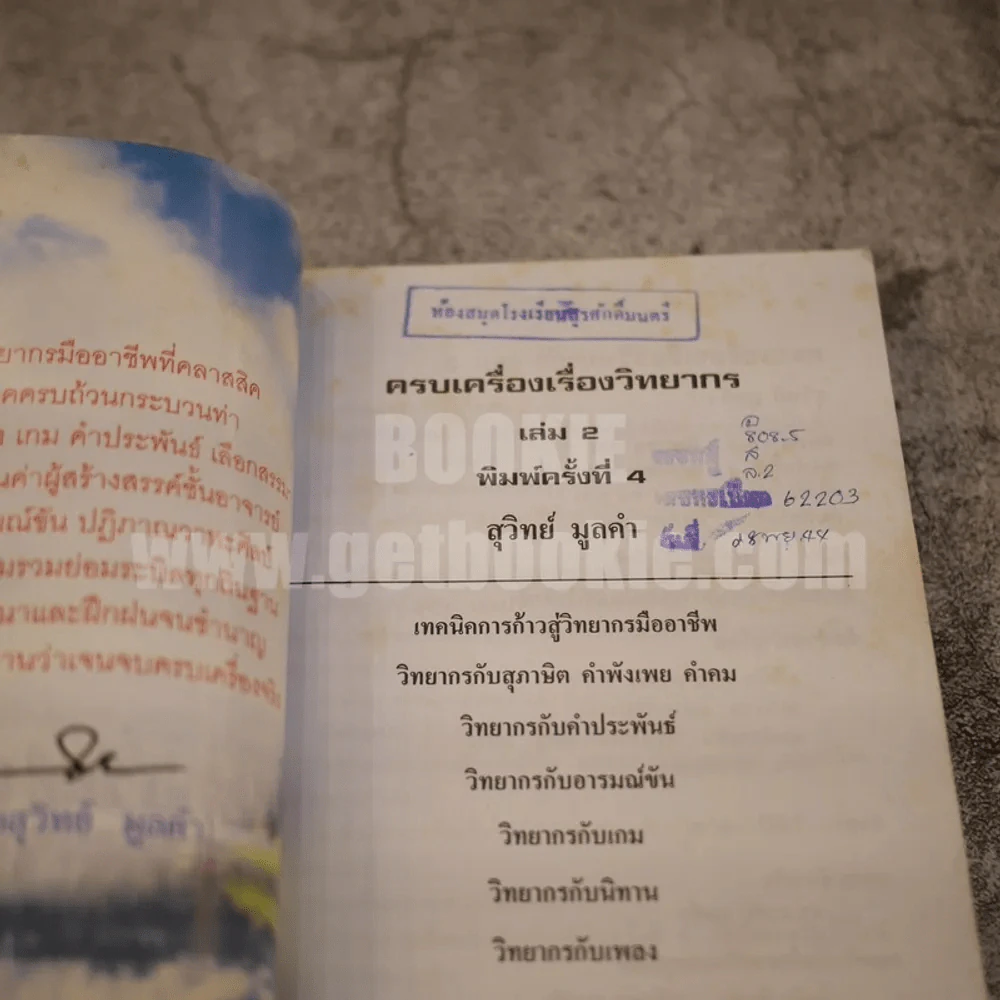 ยากรมืออาชีพที่คลาสสิค
คครบถ้วนกระบวนท่า
เกม คำประพันธ์ เลือกสรร
นค่าผู้สร้างสรรค์ชั้นอาจารย์
ณ์ขัน ปฏิภาณวาทะศิลป์
มรวมย่อมระบิลทุกถิ่นฐาน
นาและฝึกฝนจนชำนาญ
านว่าเจนจบครบเครื่องจริง
สุวิทย์ มูลคำ
ห้องสมุดโรงเรียนสุรศักดิ์มนตรี
ครบเครื่องเรื่องวิทยากร
เล่ม 2
พิมพ์ครั้งที่ 4
สุวิทย์ มูลคำ
808.5
ส
ล.2
62203
28 พย 44
เทคนิคการก้าวสู่วิทยากรมืออาชีพ
วิทยากรกับสุภาษิต คำพังเพย คำคม
วิทยากรกับคำประพันธ์
วิทยากรกับอารมณ์ขัน
วิทยากรกับเกม
วิทยากรกับนิทาน
วิทยากรกับเพลง
BOOKIE
www.getbookie.com